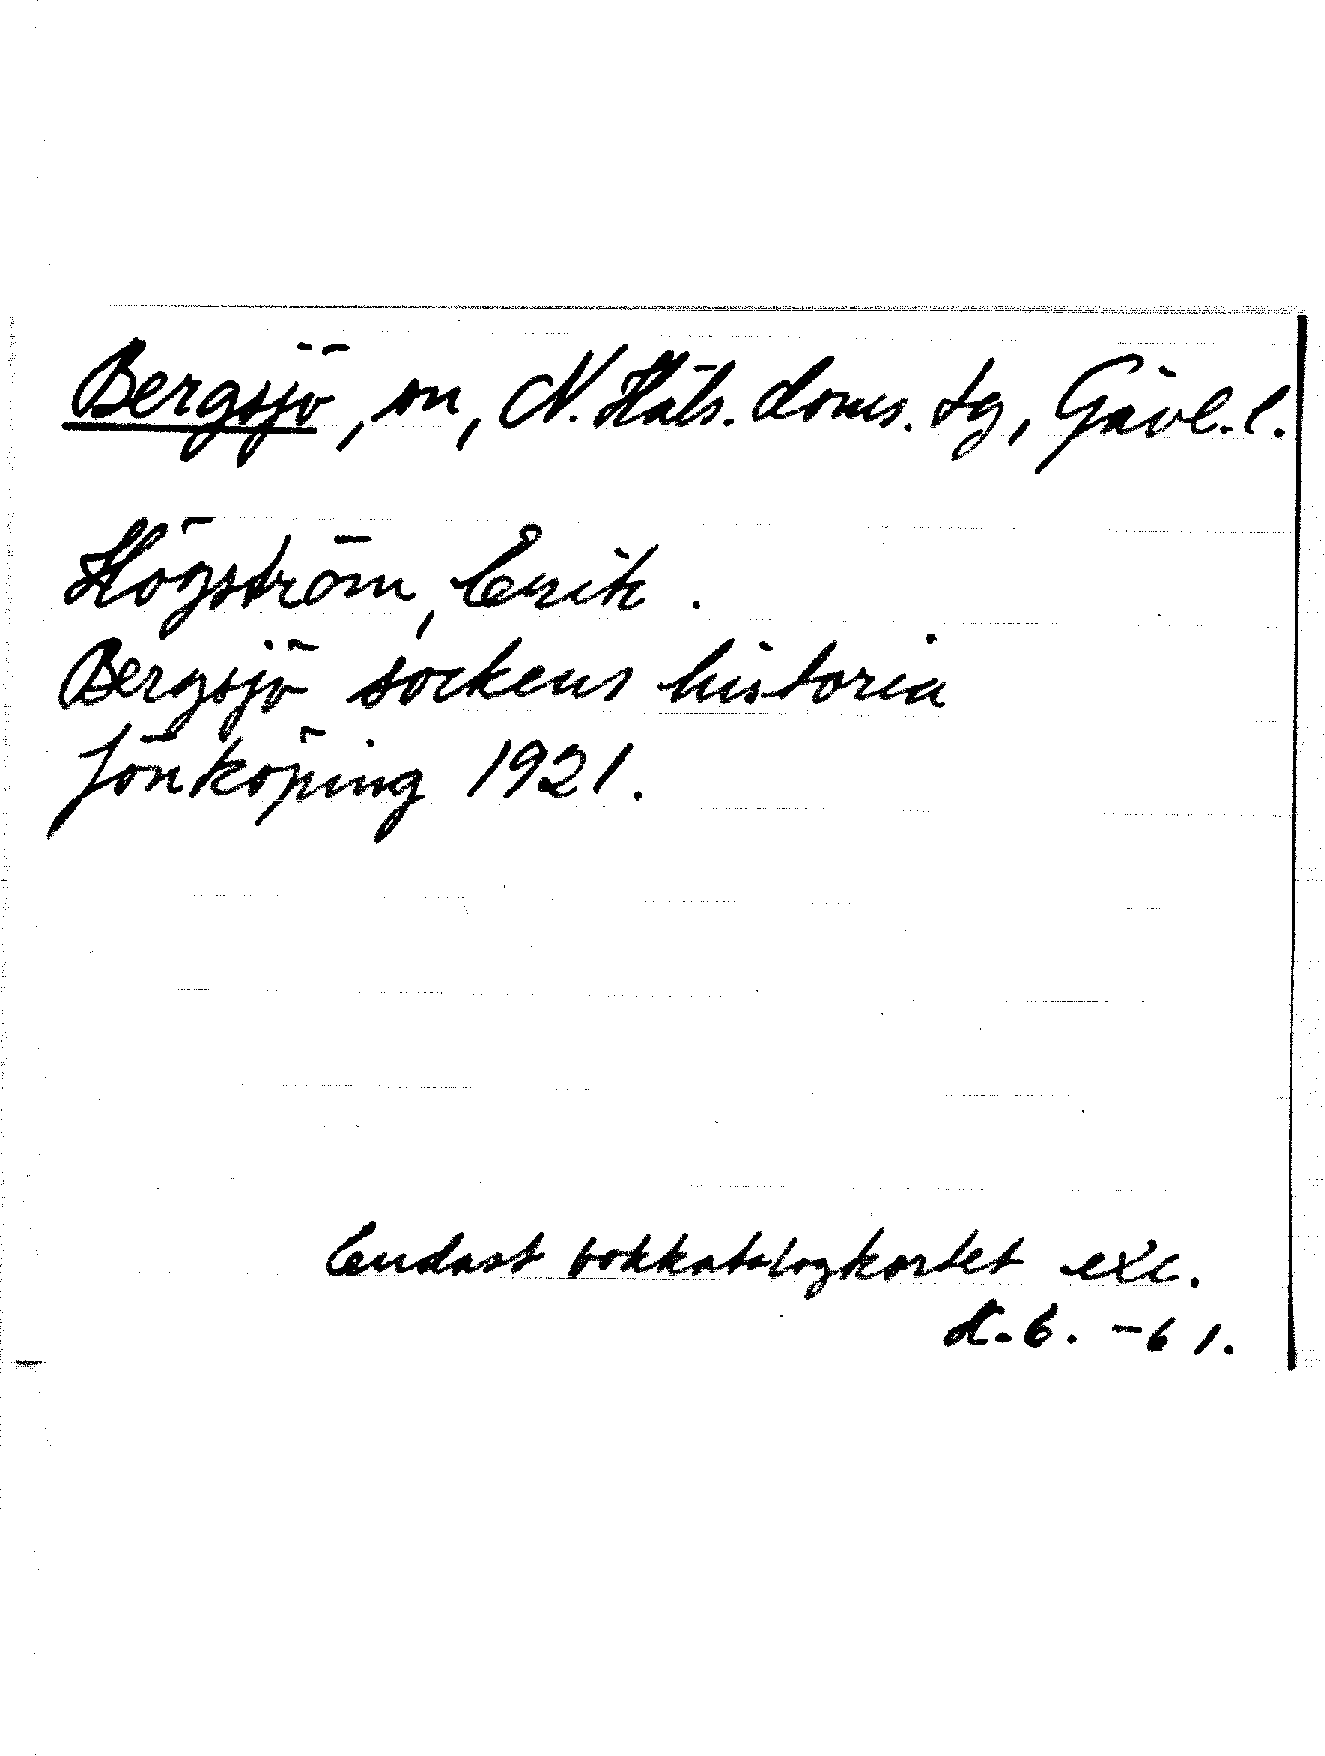 Bergsjö, sn, N. Häls. doms. tg, Gävl. l.
Högström, Erik.
Bergsjö sockens historia
Jönköping 1921.
Endast bokkatalogkortet exc.
6. -61.